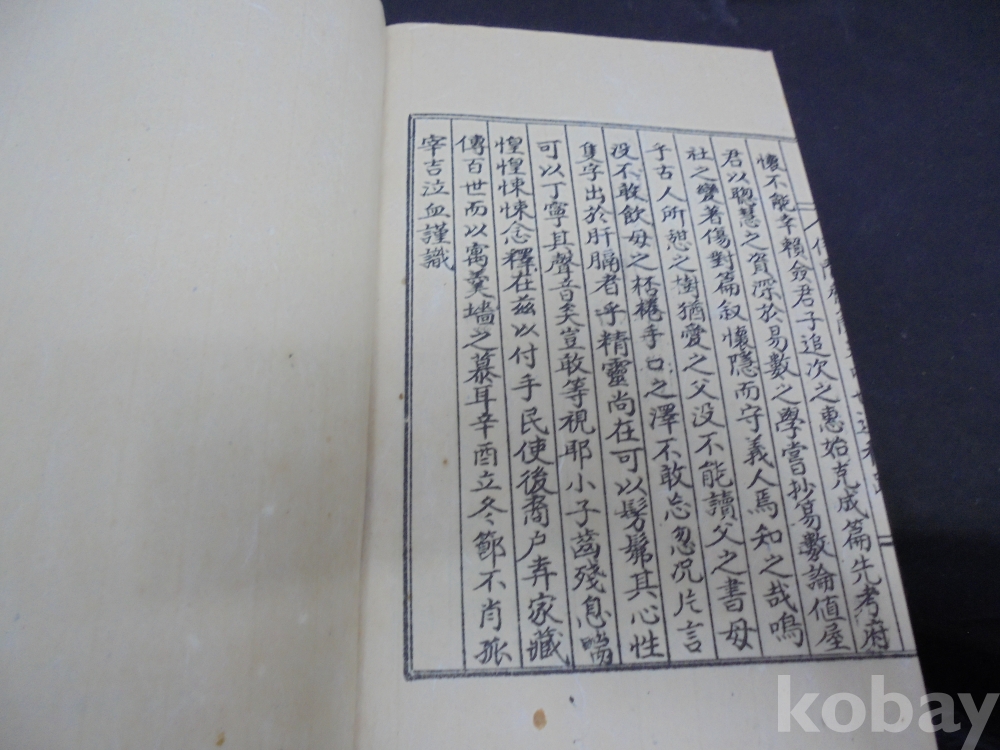 懷不能辛賴僉君子追次之惠始克成篇先考府
君以聰慧之資深於易數之學嘗抄易數論値屋
社之變著傷對篇叙懷隱而守義人焉知之哉鳴
乎古人所憩之樹猶愛之父没不能讀父之書母
没不敢飮母之桮棬手口之澤不敢忘忽况片言
隻字出於肝膈者乎精靈尚在可以髣髴其心性
可以丁寧其聲音矣豈敢等視耶小子齒殘息
惶惶悚悚念釋在茲以付手民使後裔户弆家藏
傳百世而以寓羹墻之慕耳辛酉立冬節不肖孤
宰吉泣血謹識
kobay